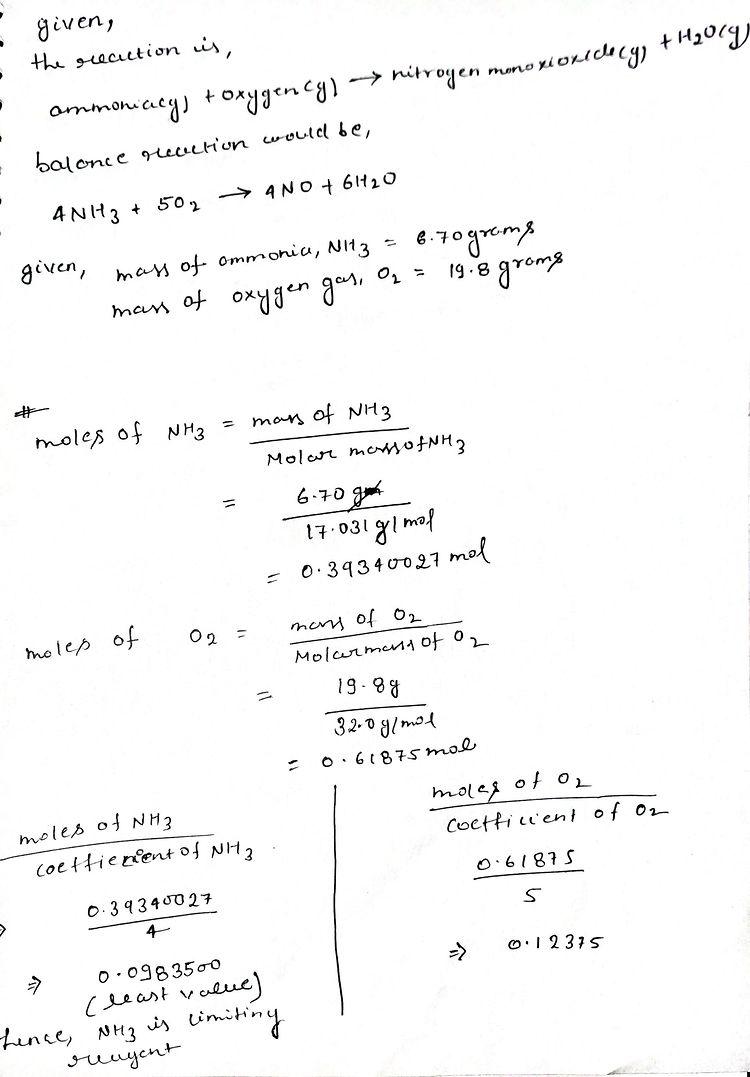 given,
the reaction is,
ammonia(g) + oxygen(g) → nitrogen monoxioxide(g) + H2O(g)
balance reaction would be,
4NH3 + 5O2 → 4NO + 6H2O
given, mass of ammonia, NH3 = 6.70 grams
mass of oxygen gas, O2 = 19.8 grams
#
moles of NH3 = mass of NH3
Molar mass of NH3
= 6.70 g
17.031 g/mol
= 0.39340027 mol
moles of O2 = mass of O2
Molar mass of O2
= 19.8g
32.0 g/mol
= 0.61875 mol
moles of NH3
coefficient of NH3
0.39340027
4
⇒ 0.0983500
(least value)
hence, NH3 is limiting
reagent
moles of O2
coefficient of O2
0.61875
5
⇒ 0.12375